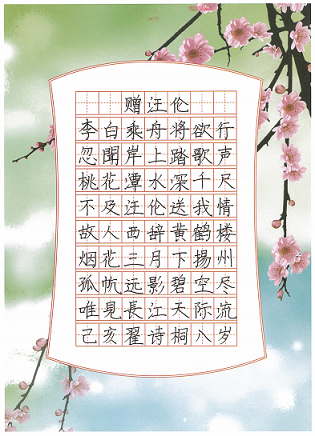 赠汪伦
李白乘舟将欲行
忽聞岸上踏歌声
桃花潭水深千尺
不及汪伦送我情
故人西辞黄鹤楼
烟花三月下揚州
孤帆远影碧空尽
唯見長江天际流
己亥翟诗桐八岁